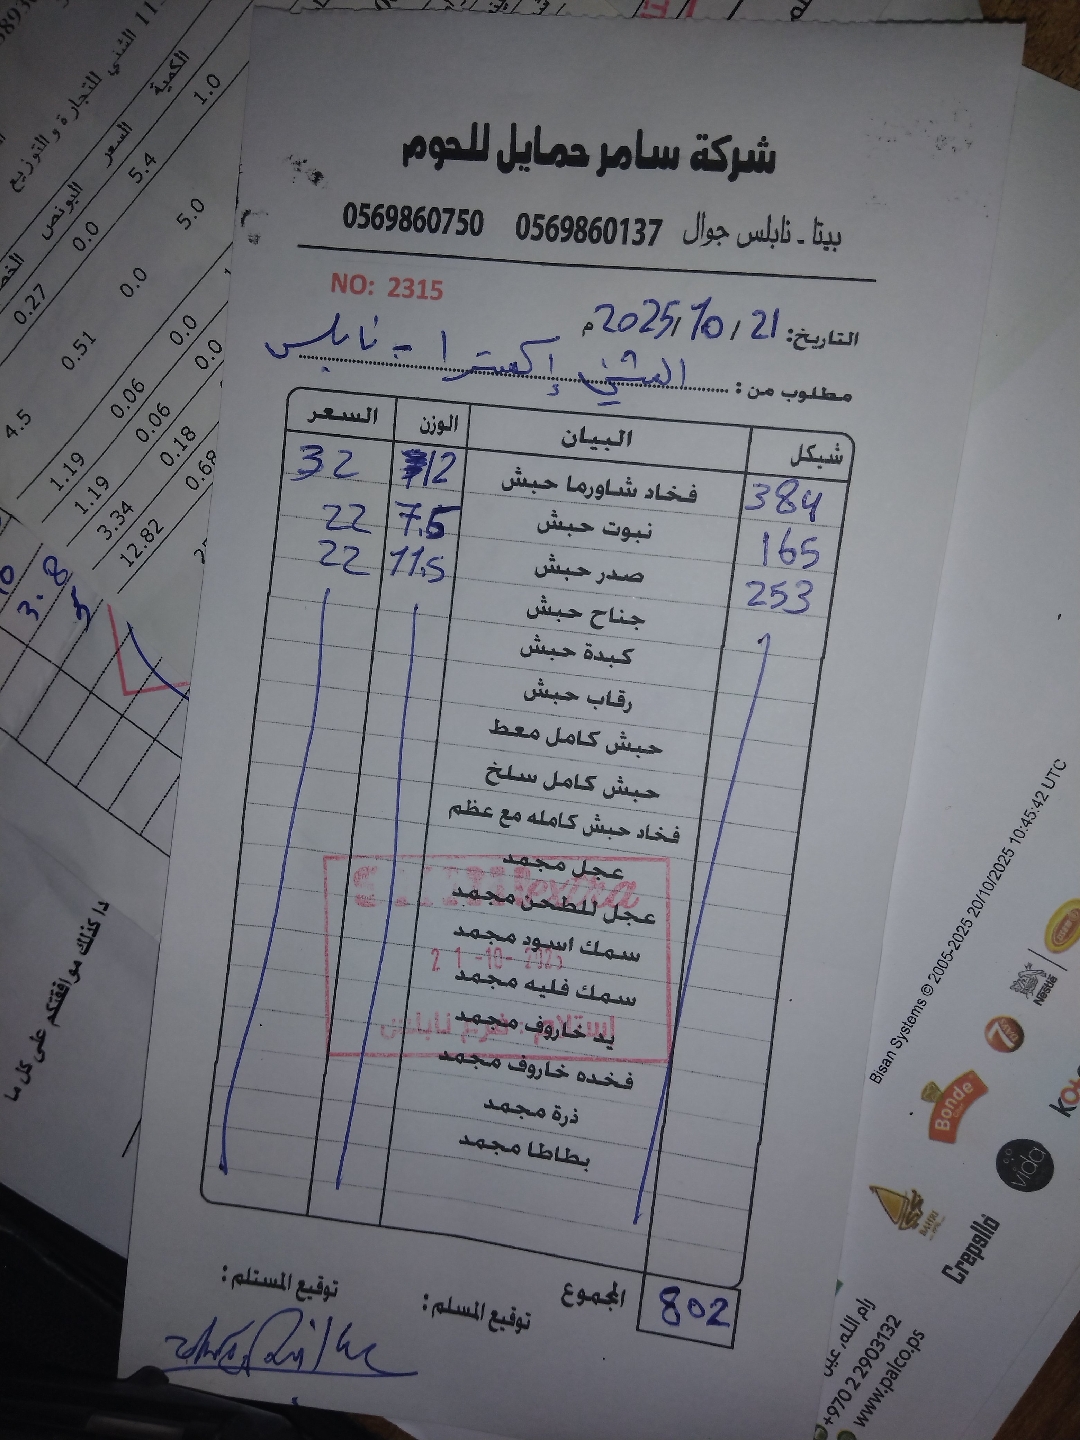 شركة سامر حمايل للحوم
بيتا - نابلس جوال 0569860137 0569860750
NO: 2315
التاريخ: 21 / 10 / 2025م
مطلوب من: الشني إكسترا - نابلس
شيكل البيان الوزن السعر
384 فخاد شاورما حبش 12 32
165 نبوت حبش 7.5 22
253 صدر حبش 11.5 22
جناح حبش
كبدة حبش
رقاب حبش
حبش كامل معط
حبش كامل سلخ
فخاد حبش كامله مع عظم
عجل مجمد
عجل للطحن مجمد
سمك اسود مجمد
سمك فليه مجمد
يد خاروف مجمد
فخده خاروف مجمد
ذرة مجمد
بطاطا مجمد
extra
21-10-2025
إستلام
المجموع 802
توقيع المسلم:
توقيع المستلم:
الشني للتجارة و التوزيع
الكمية السعر البونص
1.0 5.4 0.0 0.27
5.0 0.0 0.51 4.5
0.0 0.06 1.19
0.0 0.06 1.19
0.18 3.34
0.68 12.82
3.8
كذلك موافقتكم على كل ما
Bisan Systems © 2005-2025 20/10/2025 10:45:42 UTC
Nestle
7
Bonde
vida
BAHRI
Crepallo
رام الله, عين
+970 2 2903132
www.palco.ps